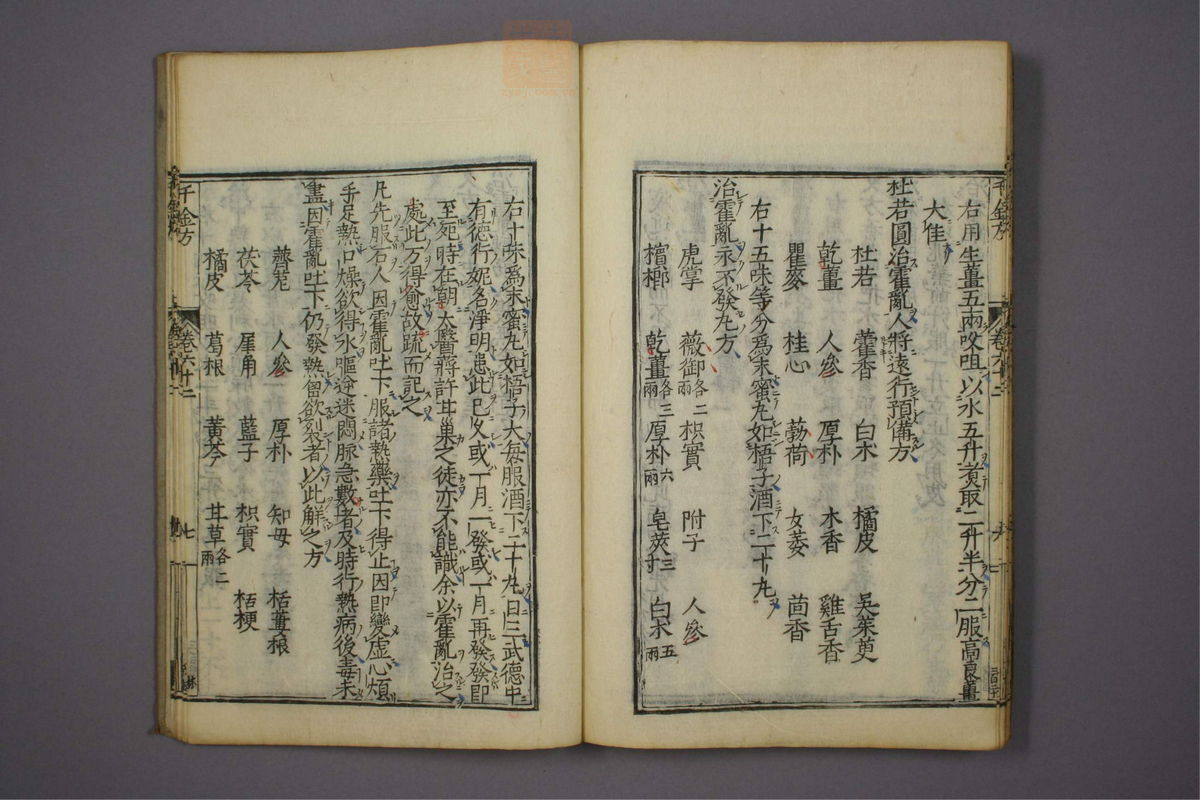 右用生薑五兩㕮咀以水五升煮取二升半分二服高良薑
大佳
杜若圓治霍亂人將遠行預備方
杜若 藿香 白朮 橘皮 吳茱萸
乾薑 人參 厚朴 木香 雞舌香
瞿麥 桂心 薄荷 女萎 茴香
右十五味等分爲末蜜丸如梧子酒下二十丸
治霍亂永不發丸方
虎掌 薇御各二兩 枳實 附子 人參
檳榔 乾薑各三兩 厚朴六兩 皂莢三寸 白朮五兩
右十味爲末蜜丸如梧子大每服酒下二十丸日三武德中
有德行妮名淨明患此已久或一月一發或一月再發發即
至死時在朝大醫蔣許甘巢之徒亦不能識余以霍亂治之
處此方得愈故疏而記之
凡先服石人因霍亂吐下服諸熱藥吐下得止因即變虛心煩
手足熱口燥欲得水嘔逆迷悶脈急數者及時行熱病後毒未
盡因霍亂吐下仍發熱胷欲裂者以此解之方
薺苨 人參 厚朴 知母 栝蔞根
茯苓 犀角 藍子 枳實 桔梗
橘皮 葛根 黃芩 甘草各二兩
千金方
卷六十二
七